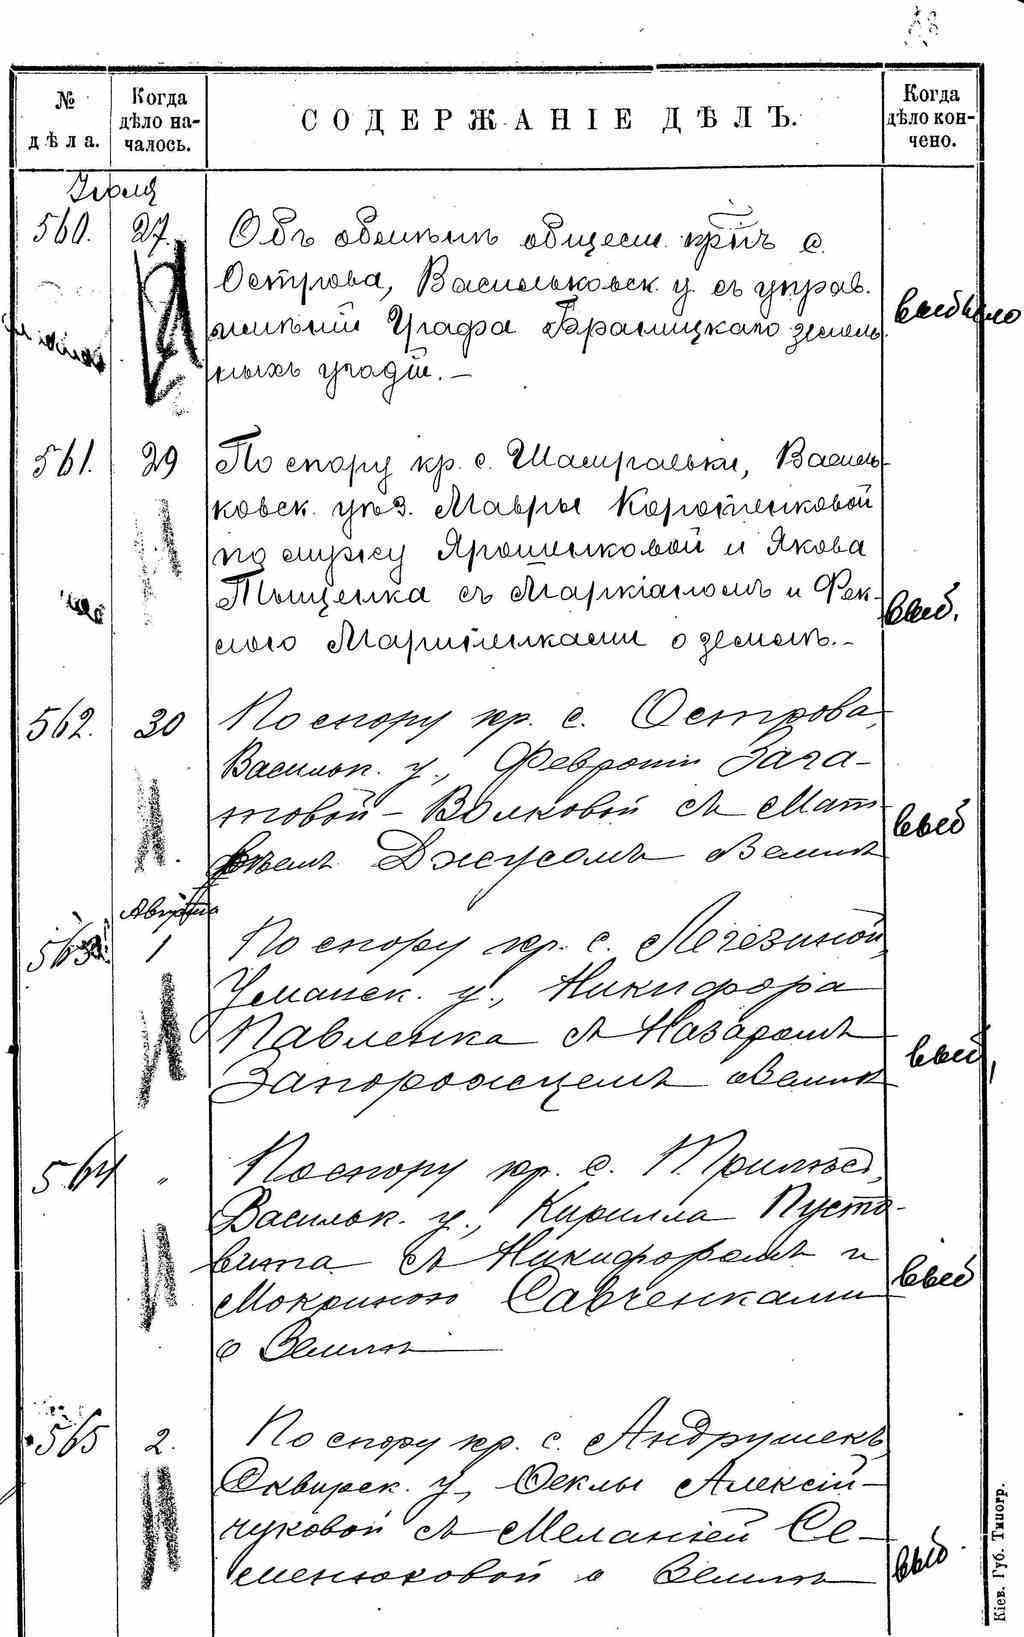 № дѣла.
Когда дѣло началось.
СОДЕРЖАНІЕ ДѢЛЪ.
Когда дѣло кончено.
Іюля
560. 27. Объ обмѣнѣ общест. крт̃ъ с.
Острова, Васильковск. у. съ управ.
имѣній Графа Браницкаго земель-
ныхъ угодій.—
выбыло
561. 29 По спору кр. с. Шамраевки, Василь-
ковск. уѣз. Мавры Коротенковой
по мужу Ярошенковой и Якова
Тыщенка съ Маркіаномъ и Фек-
лою Мартыненками о землѣ.—
выб.
562. 30 По спору кр. с. Острова,
Васильк. у., Февроніи Зага-
товой-Волковой съ Мат-
вѣемъ Джусомъ о Землѣ
выб
Августа
563. 1 По спору кр. с. Легезиной,
Уманск. у., Никифора
Павленка съ Назаромъ
Запорожцемъ о Землѣ
выб,
564 " По спору кр. с. Трилѣсъ,
Васильк. у., Кирилла Пусто-
вита съ Никифоромъ и
Мокриною Савченками
о Землѣ
выб
565 2. По спору кр. с. Андрушекъ,
Сквирск. у., Феклы Алексій-
чуковой съ Меланіей Се-
менюковой о Землѣ
выб
Кіев. Губ. Типогр.